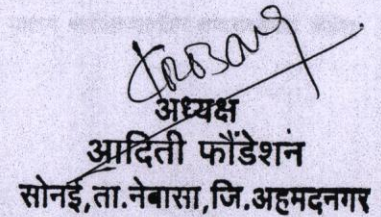 अध्यक्ष
आदिती फौंडेशन
सोनई,ता.नेबासा,जि.अहमदनगर